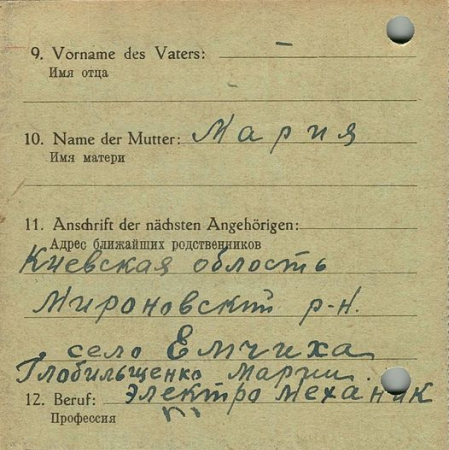 9. Vorname des Vaters: –
Имя отца
10. Name der Mutter: Мария
Имя матери
11. Anschrift der nächsten Angehörigen:
Адрес ближайших родственников
Киевская область
Мироновский р-н.
село Емчиха
Глобильщенко Марии.
12. Beruf: Электро механик
Профессия